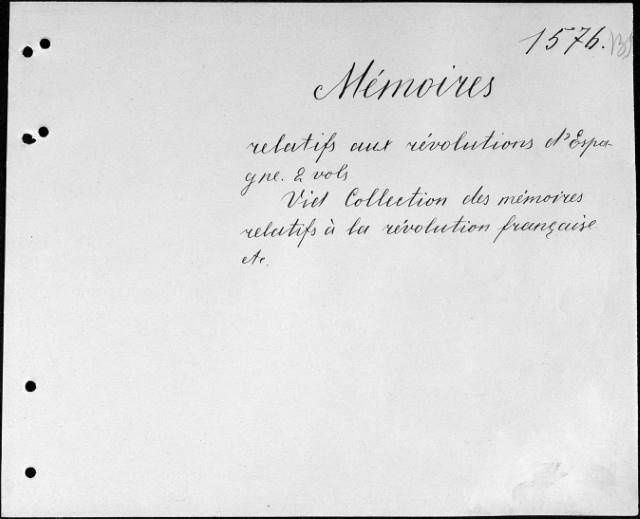 1576.
Mémoires
relatifs aux révolutions d'Espa-
gne. 2 vols
Vid Collection des mémoires
relatifs à la révolution française
etc.